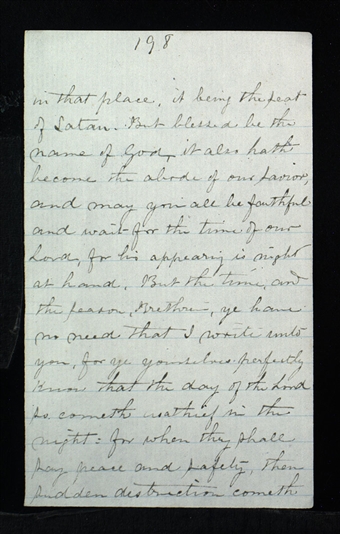 198
in that place, it being the seat
of Satan. But blessed be the
name of God, it also hath
become the abode of our Savior,
and may you all be faithful
and wait for the time of our
Lord, for his appearing is nigh
at hand. But the time, and
the season, Brethren, ye have
no need that I write unto
you, for ye yourselves perfectly
know that the day of the Lord
so cometh as a thief in the
night: for when they shall
say peace and safety, then
sudden distruction cometh